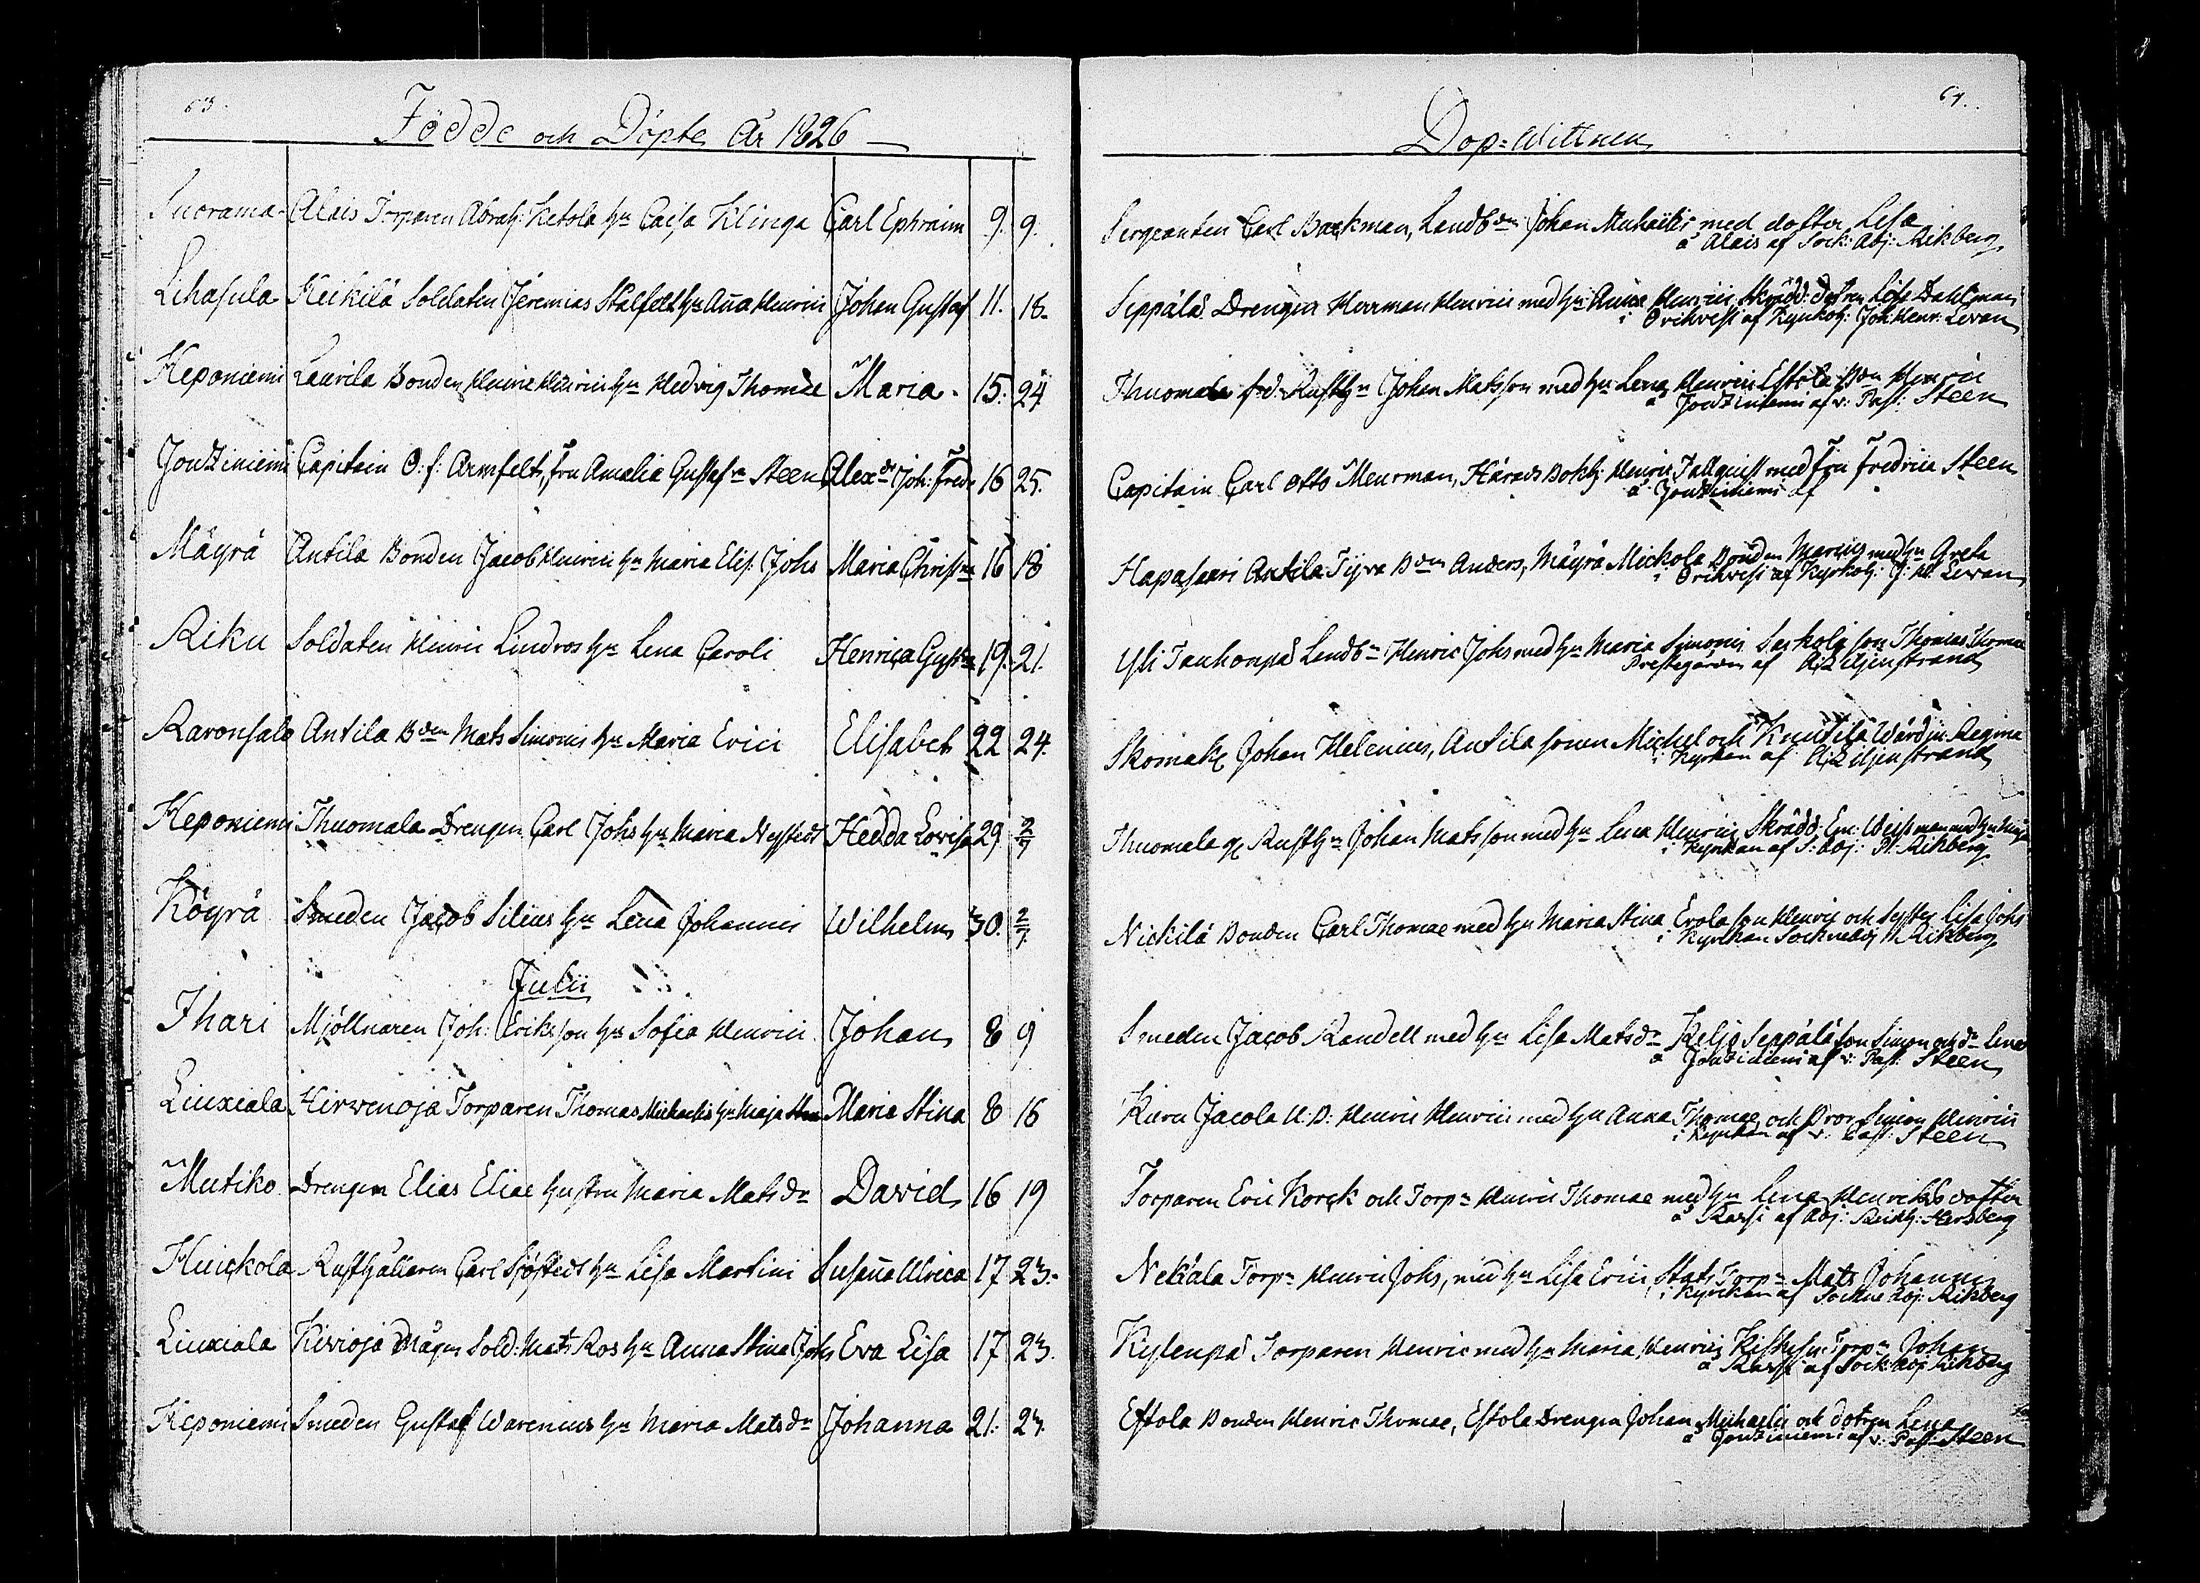 63.
Födde och Döpte År 1826
Suorama Alais Torparen Abrah: Ketola hu Caisa Klinga Carl Ephraim 9. 9.
Lihasula Keikilä Soldaten Jeremias Stålfelt hu Anna Henrici Johan Gustaf 11. 18.
Heponiemi Laurila Bonden Henric Henrici hu Hedvig Thomæ Maria 15. 24
Joutziniemi Capitain O: f: Armfelt, fru Amalia Gustafva Steen Alexdr Joh: Fredr 16 25.
Mäyrä Antila Bonden Jacob Henrici hu Maria Elis. Johs Maria Christina 16 18
Riku Soldaten Henric Lindros hu Lena Caroli Henrica Gustva 19. 21.
Raronsalo Antila Bden Mats Simonis hu Maria Erici Elisabet 22 24.
Heponiemi Thuomala Drengen Carl Johs hu Maria Nystedt Hedda Lovisa 29 2/7
Köyrä Smeden Jacob Silius hu Lena Johannis Wilhelm 30. 2/7.
Julii
Ihari Mjöllnaren Joh: Eriksson hu Sofia Henrici Johan 8 9
Liuxiala Hirvenoja Torparen Thomas Michaelis hu Maja Stina Maria Stina 8 16
Mutiko Drengen Elias Eliae hustru Maria Matsdr David 16 19
Huickola Rusthållaren Carl Sjöstedt hu Lisa Martini Susanna Ulrica 17 23.
Liuxiala Kivioja Mågen Sold: Mats Ros hu Anna Stina Johs Eva Lisa 17 23.
Heponiemi Smeden Gustaf Warenius hu Maria Matsdr Johanna 21. 23.
64.
Dop=Wittnen
Sergeanten Carl Backman, Landbden Johan Michaelis med dotter Lisa
å Alais af Sock: Adj: Rikberg
Seppälä Drengen Herman Henrici med hu Anna Henrici, Skrädd: dottren Lisa Dahlman
i Orihvesi af Kyrkoh: Joh: Henr: Levan
Thuomala f.d. Rusthn Johan Matsson med hu Lena Henrici Estola Bden Henric
å Joutziniemi af v: Past: Steen
Capitain Carl Otto Meurman, Härads Bokh: Henric Tallquist med fru Fredrica Steen
å Joutziniemi af
Hapasaari Antila Tyva Bden Anders, Mäyrä Mickola Bonden Marcus med hu Greta
i Orihvesi af Kyrkoh: J. H. Levan
Yli Taukonpä Landbn Henric Johs med hu Maria Simonis Sarkola son Thomas Thomae
Prestgården af Liljenstrand
Skomak: Johan Helenius, Antila sonen Michel och Knutila Wärdin Regina
i Kyrkan af Liljenstrand
Thuomala Rusthn Johan Matsson med hu Lena Henrici, Skrädd: Em: Weissman med hu
i Kyrkan af S: Adj: H: Rikberg
Nickilä Bonden Carl Thomae med hu Maria Stina Erola son Henric och syster Lisa Johs
i Kyrkan Sockneadj H Rikberg
Smeden Jacob Randell med hu Lisa Matsdr Keljo Seppälä son Simon och dr Lena
å Joutziniemi af v: Past: Steen
Jacola Henric Henrici med hu Anna Thomae och Bror Simon Henrici
i Kyrkan af v: Past: Steen
Torparen Eric Korck och Torpn Henric Thomae med hu Lena Henricsdotter
å Rarsi af Adj: Hersberg
Nekäla Torpn Henric Johs, med hu Lisa Erici, Stats Torpn Mats Johannis
i Kyrckan af Sockne Adj: Rikberg
Kylenpä Torparen Henric med hu Maria Henrici Torpn Johan
å Rarsi af Sock Adj Rikberg
Estola Bonden Henric Thomae, Estola Drengen Johan Michaelis och dotren Lena
å Joutziniemi af v: Past: Steen